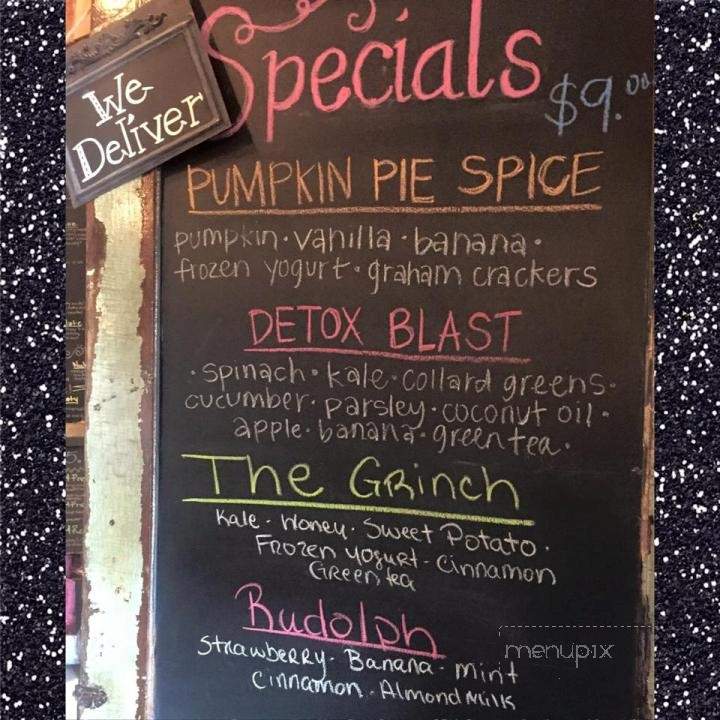 Specials
We
Deliver
$9.00
PUMPKIN PIE SPICE
pumpkin · vanilla · banana ·
frozen yogurt · graham crackers
DETOX BLAST
· spinach · kale · collard greens ·
cucumber · parsley · coconut oil ·
apple · banana · green tea ·
The Grinch
Kale · Honey · Sweet Potato ·
Frozen yogurt · Cinnamon
Green tea
Rudolph
Strawberry · Banana · mint
Cinnamon · Almond Milk
menupix